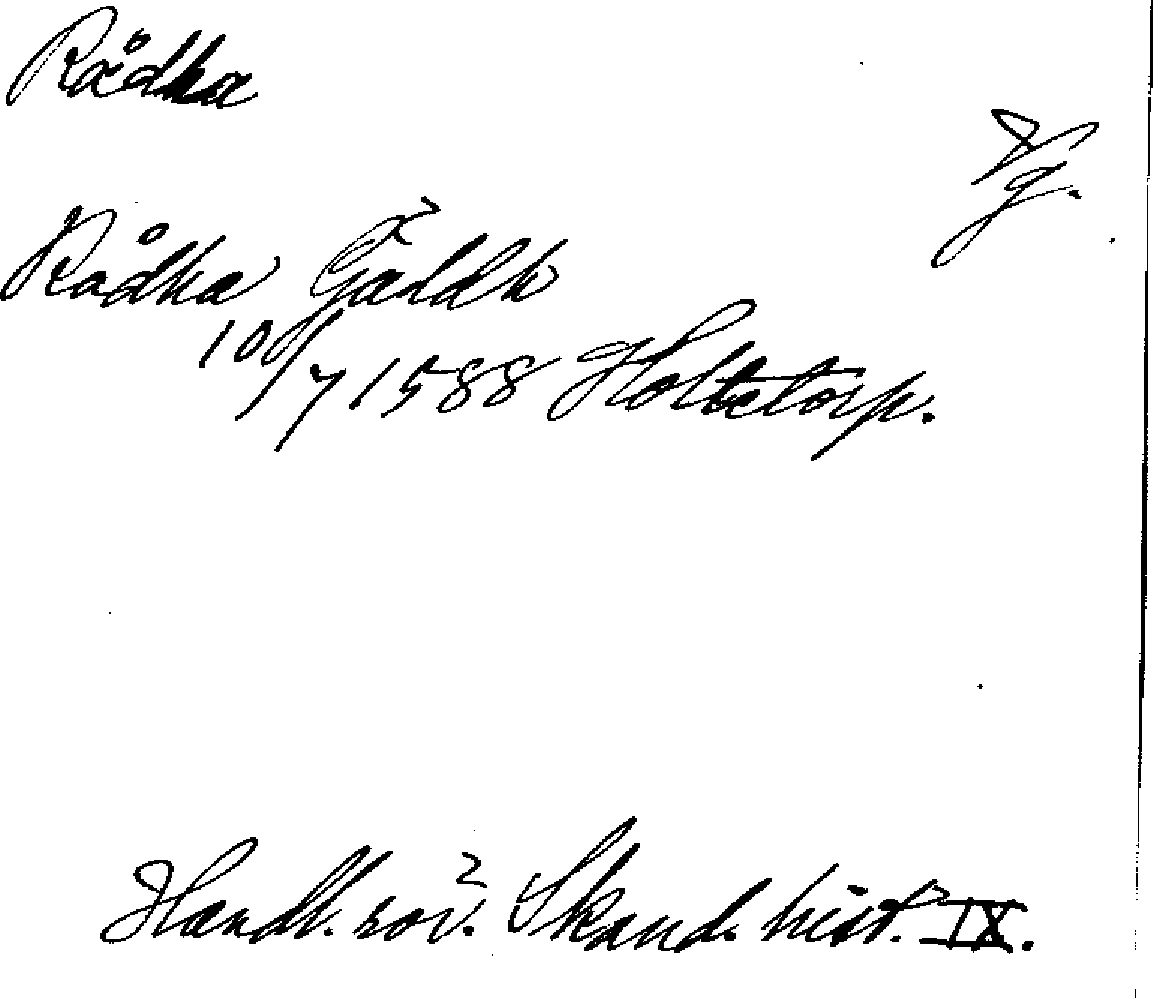 Rådka
Vg.
Rådka Gäldh
10/7 1588 Holtetorp.
Handl. rör. Skand. hist. IX.